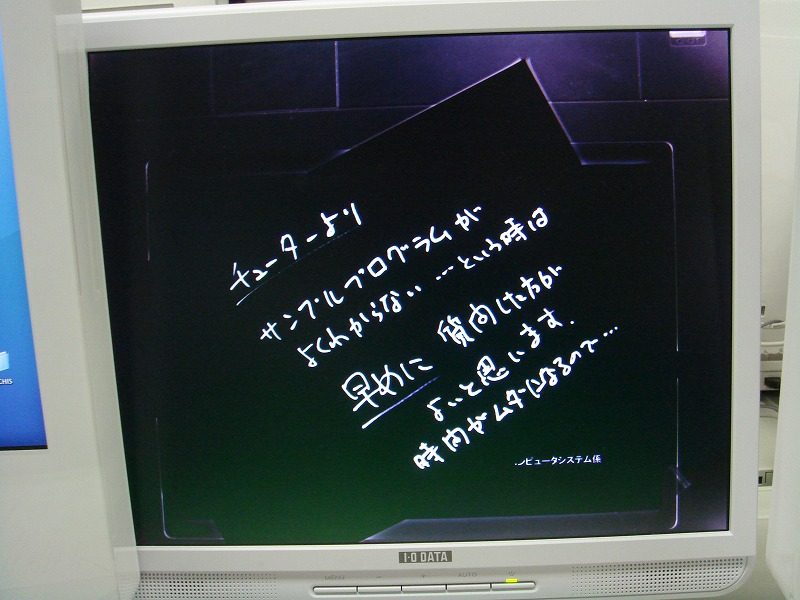 チューターより
サンプルプログラムが
よくわからない…という時は
早めに 質問した方が
よいと思います.
時間がムダになるので…
ンピュータシステム係
I·O DATA
MENU - + AUTO
CHIS